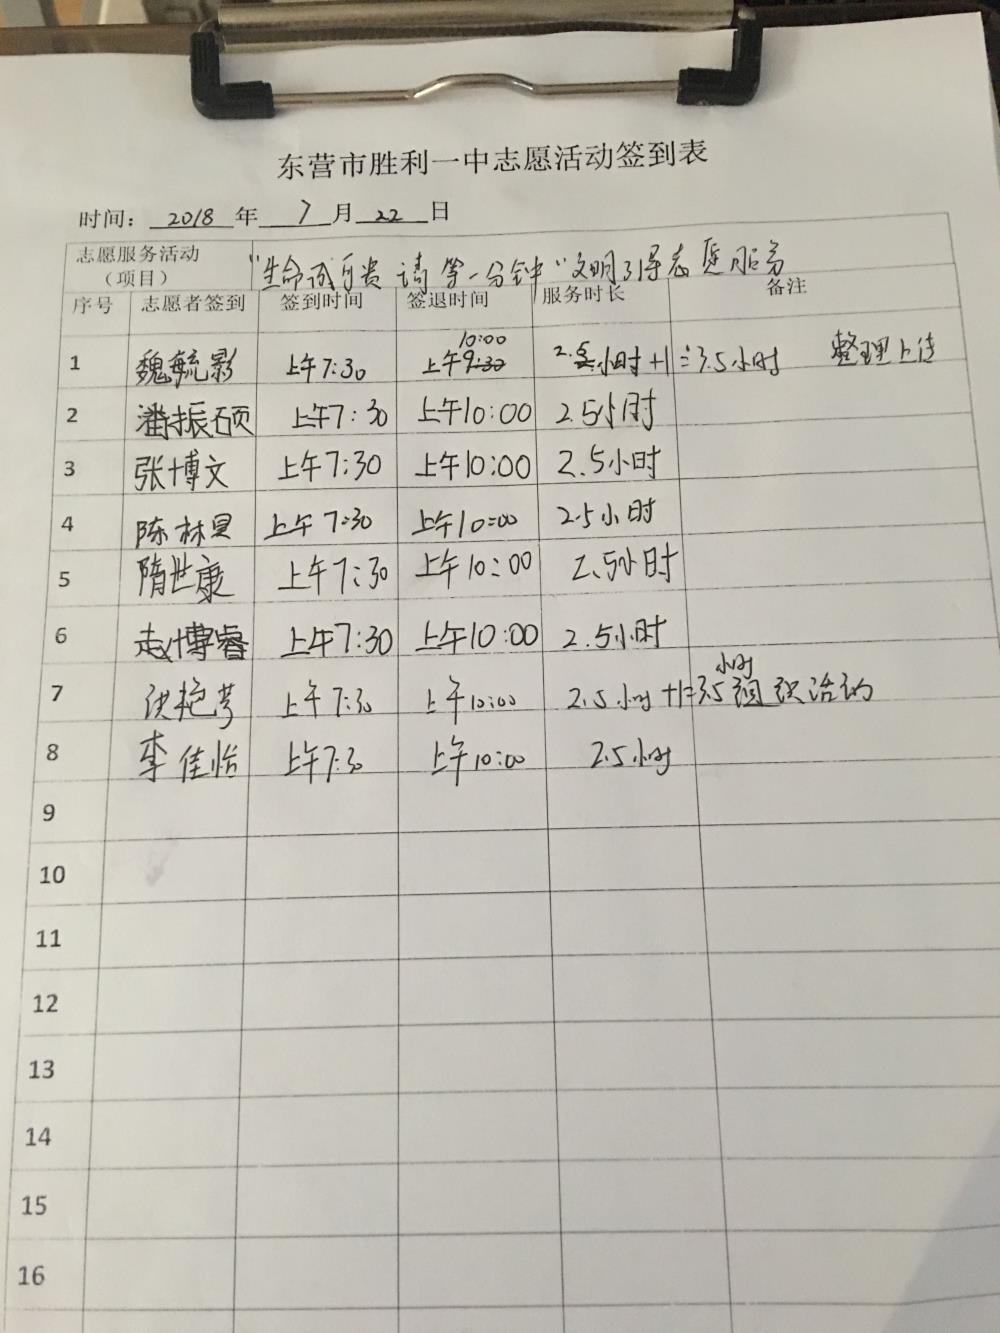 东营市胜利一中志愿活动签到表
时间：2018年7月22日
志愿服务活动（项目） "生命诚可贵 请等一分钟"文明引导志愿服务
序号 志愿者签到 签到时间 签退时间 服务时长 备注
10:00
1 魏毓影 上午7:30 上午9:30 2.5小时+1=3.5小时 整理上传
2 潘振硕 上午7:30 上午10:00 2.5小时
3 张博文 上午7:30 上午10:00 2.5小时
4 陈林 上午7:30 上午10:00 2.5小时
5 隋世康 上午7:30 上午10:00 2.5小时
6 赵博睿 上午7:30 上午10:00 2.5小时
小时
7 艳 上午7:30 上午10:00 2.5小时+1=3.5 组织活动
8 李佳怡 上午7:30 上午10:00 2.5小时
9
10
11
12
13
14
15
16